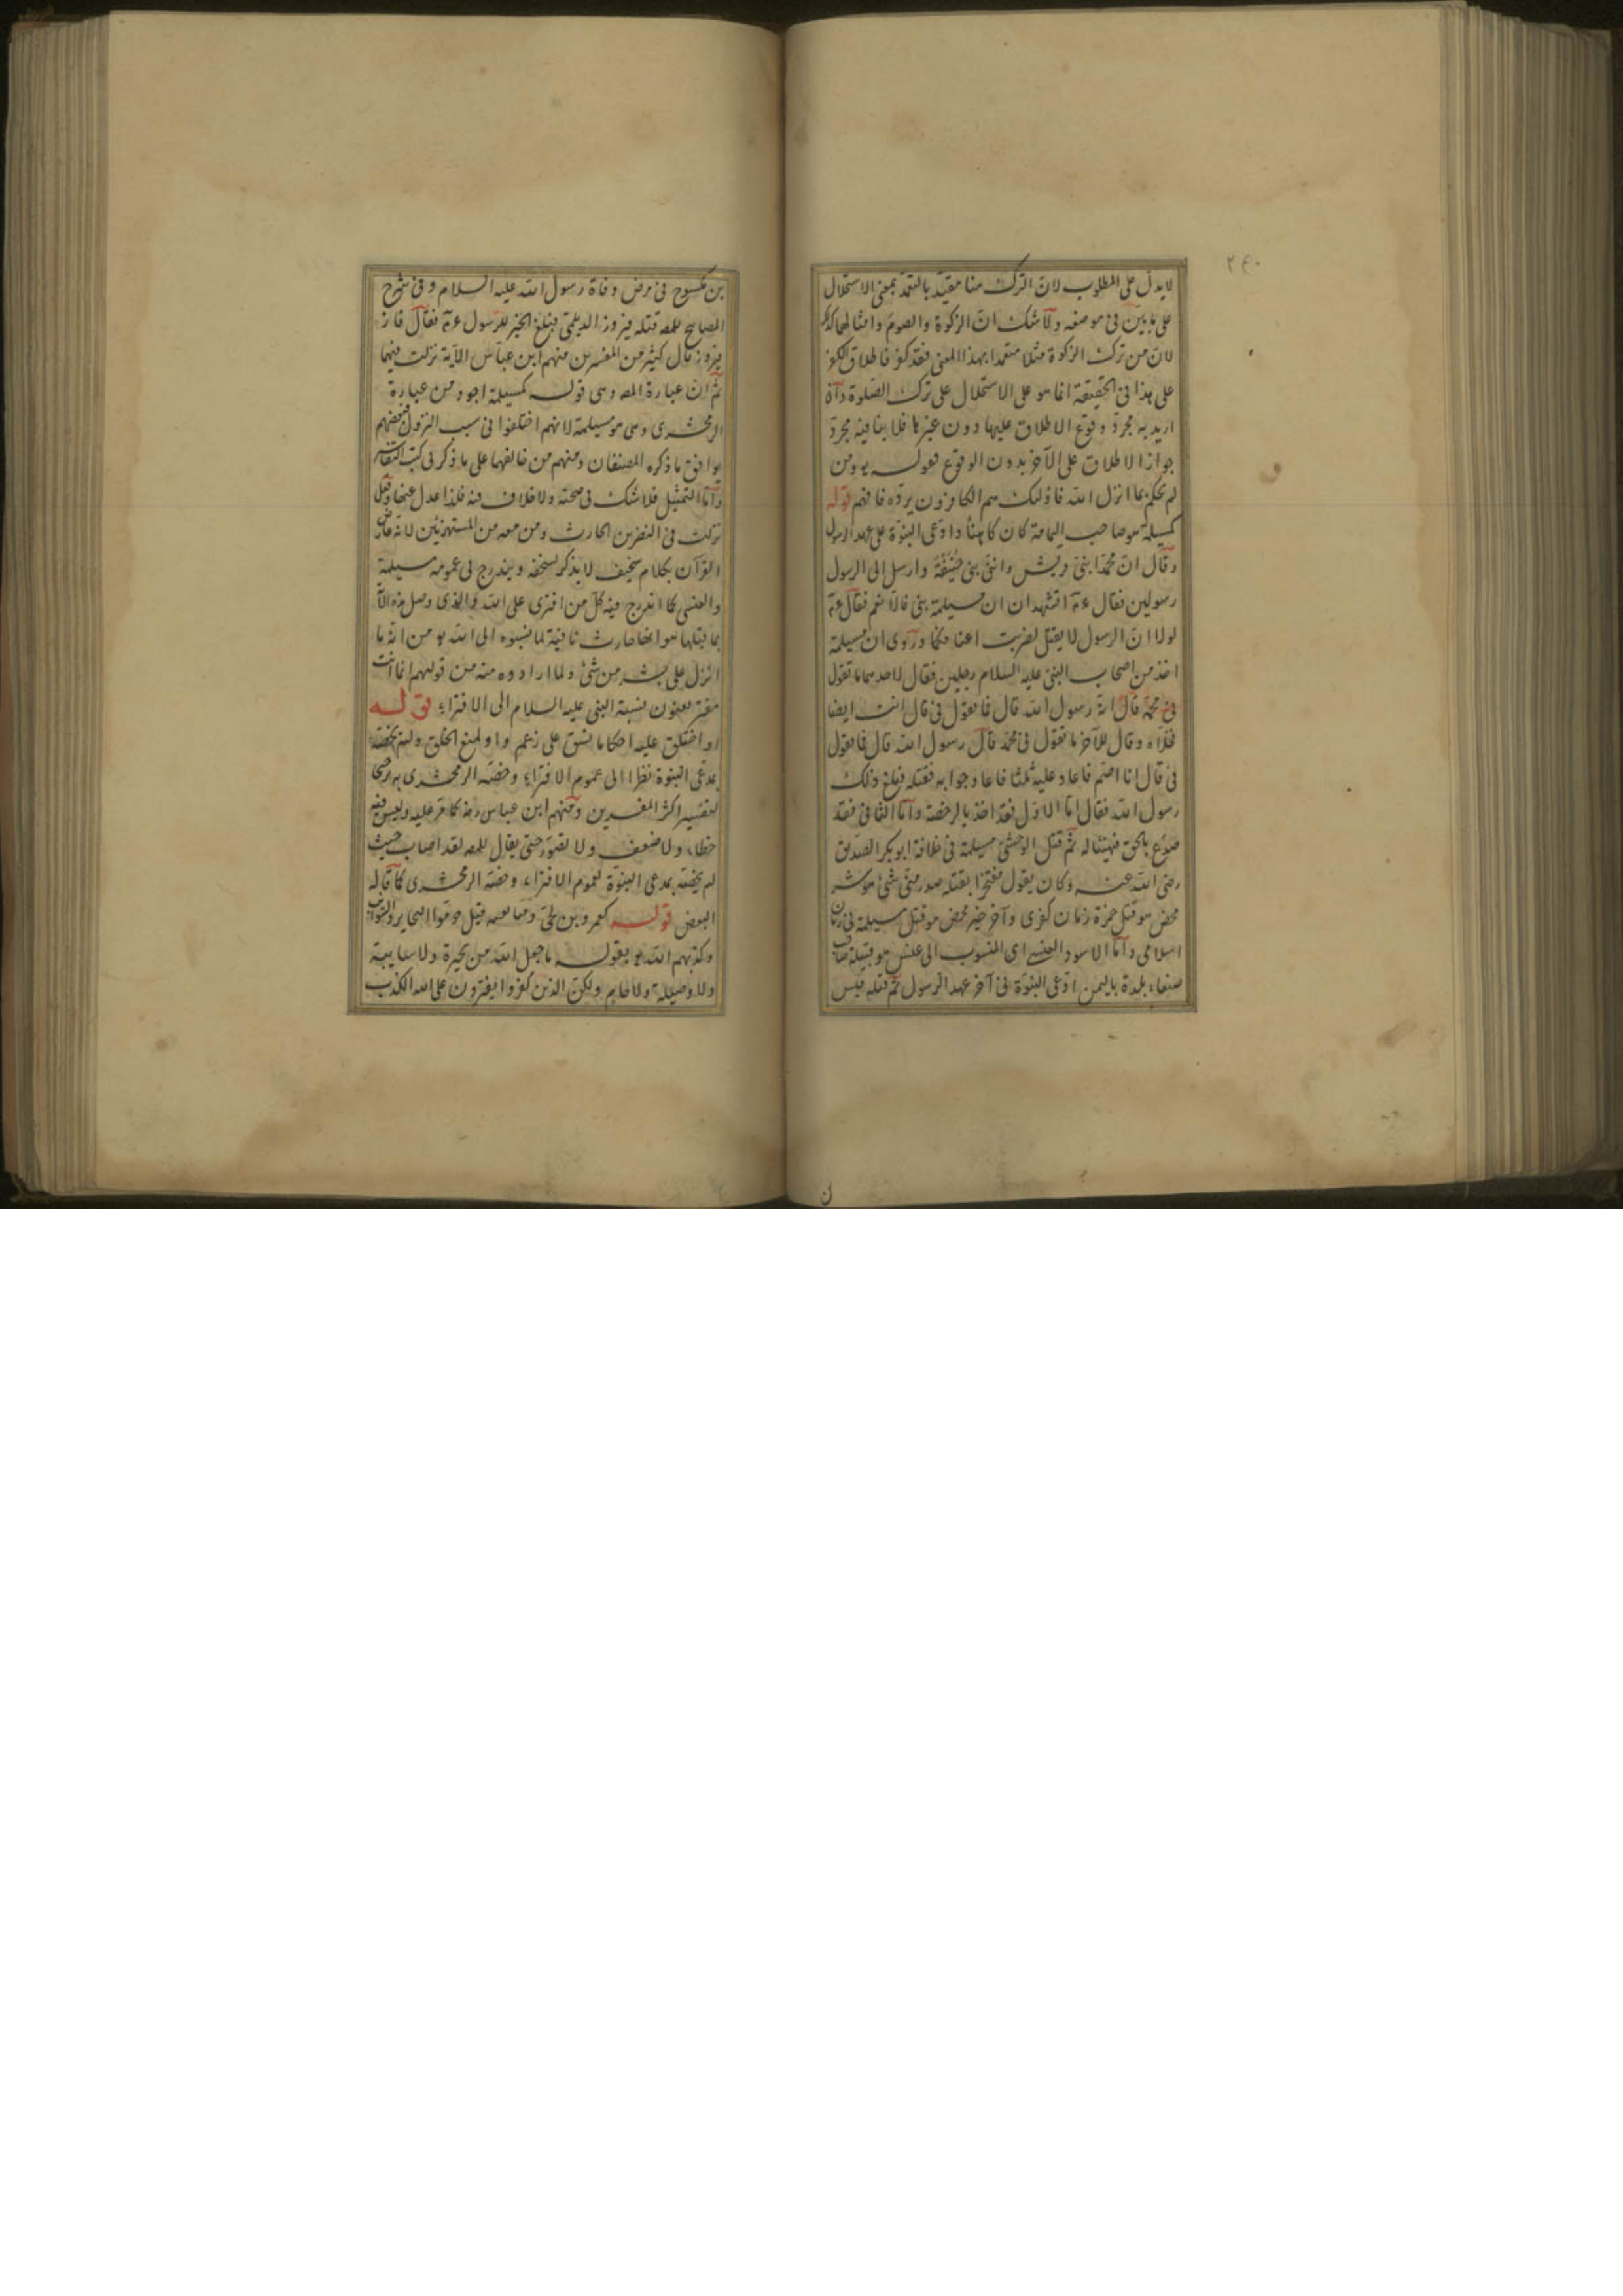 ٢٤٠
لا يدل على المطلوب لان الترك هنا مقيد بالتعمد بمعنى الاستحلال
على ما بين فى موضعه ولا شك ان الزكوة والصوم وامثالهما كذلك
لان من ترك الزكوة مثلا متعمدا بهذا المعنى فقد كفر فاطلاق الكفر
على هذا فى الحقيقة انما هو على الاستحلال على ترك الصلوة وان
اريد به مجرد وقوع الاطلاق عليها دون غيرها فلا ينافيه مجرد
جواز الاطلاق على الآخر بدون الوقوع قوله يو ومن
لم يحكم بما انزل الله فاولئك هم الكافرون يرده فافهم قوله
كمسيلمة هو صاحب اليمامة كان كاهنا وادعى النبوة على عهد الرسول
وقال ان محمدا بنى قريش وانى بنى حنيفة وارسل الى الرسول
رسولين فقال عم اتشهدان ان مسيلمة بنى قالا نعم فقال عم
لولا ان الرسول لا يقتل لضربت اعناقكما وروى ان مسيلمة
اخذ من اصحاب النبى عليه السلام رجلين فقال لاحدهما ما تقول
فى محمد قال انه رسول الله قال فما تقول فى قال انت ايضا
فخلاه وقال للآخر ما تقول فى محمد قال رسول الله قال فما تقول
فى قال انا اصم فاعاد عليه ثلثا فاعاد جوابه فقتله فبلغ ذلك
رسول الله فقال اما الاول فقد اخذ بالرخصة واما الثانى فقد
صدع بالحق فهنيئا له ثم قتل الوحشى مسيلمة فى خلافة ابو بكر الصديق
رضى الله عنه وكان يقول مفتخرا بقتله صدر منى شئ هو شر
محض هو قتل حمزة زمان كفرى وآخر خير محض هو قتل مسيلمة فى زمان
اسلامى واما الاسود العنسى اى المنسوب الى عنس هو قبيلة صاحب
صنعاء بلدة باليمن ادعى النبوة فى آخر عهد الرسول ثم قتله قيس
بن مكسوح فى مرض وفاة رسول الله عليه السلام وفى شرح
المصابيح للمصه قتله فيروز الديلمى فبلغ الخبر للرسول عم فقال فاز
فيروز قال كثير من المفسرين منهم ابن عباس الآية نزلت فيهما
ثم ان عبارة المصه وهى قوله كمسيلمة اجود من عبارة
الزمخشرى وهى هو مسيلمة لانهم اختلفوا فى سبب النزول فبعضهم
يوافق ما ذكره المصنفان ومنهم من خالفهما على ما ذكر فى كتب التفاسير
واما التمثيل فلا شك فى صحته ولا خلاف فيه فلذا عدل عنها وقيل
نزلت فى النضر بن الحارث ومن معه من المستهزئين لانه عارض
القرآن بكلام سخيف لا يذكر لسخفه ويندرج فى عمومه مسيلمة
والعنسى كما اندرج فيه كل من افترى على الله والذى وصل هذه الآية
بما قبلها هو انها صارت نافية لما نسبوه الى الله يو من انه ما
انزل على بشر من شئ ولما ارادوه منه من قولهم انما انت
مفتر يعنون نسبة النبى عليه السلام الى الافتراء قوله
او اختلق عليه احكاما نسق على زعم واو لمنع الخلو ولم يخصه
بمدعى النبوة نظرا الى عموم الافتراء وخصه الزمخشرى به ترجيحا
لتفسير اكثر المفسرين ومنهم ابن عباس رضه كما مر عليه وليس فيه
خطاء ولا ضعف ولا تصور حتى يقال للمصه لقد اصاب حيث
لم يخصه بمدعى النبوة لعموم الافتراء وخصه الزمخشرى كما قاله
البعض قوله كعمرو بن لحى ومتابعيه قيل حرموا البحاير والسوائب
وكذبهم الله يو بقوله ما جعل الله من بحيرة ولا سايبة
ولا وصيلة ولا حام ولكن الذين كفروا يفترون على الله الكذب